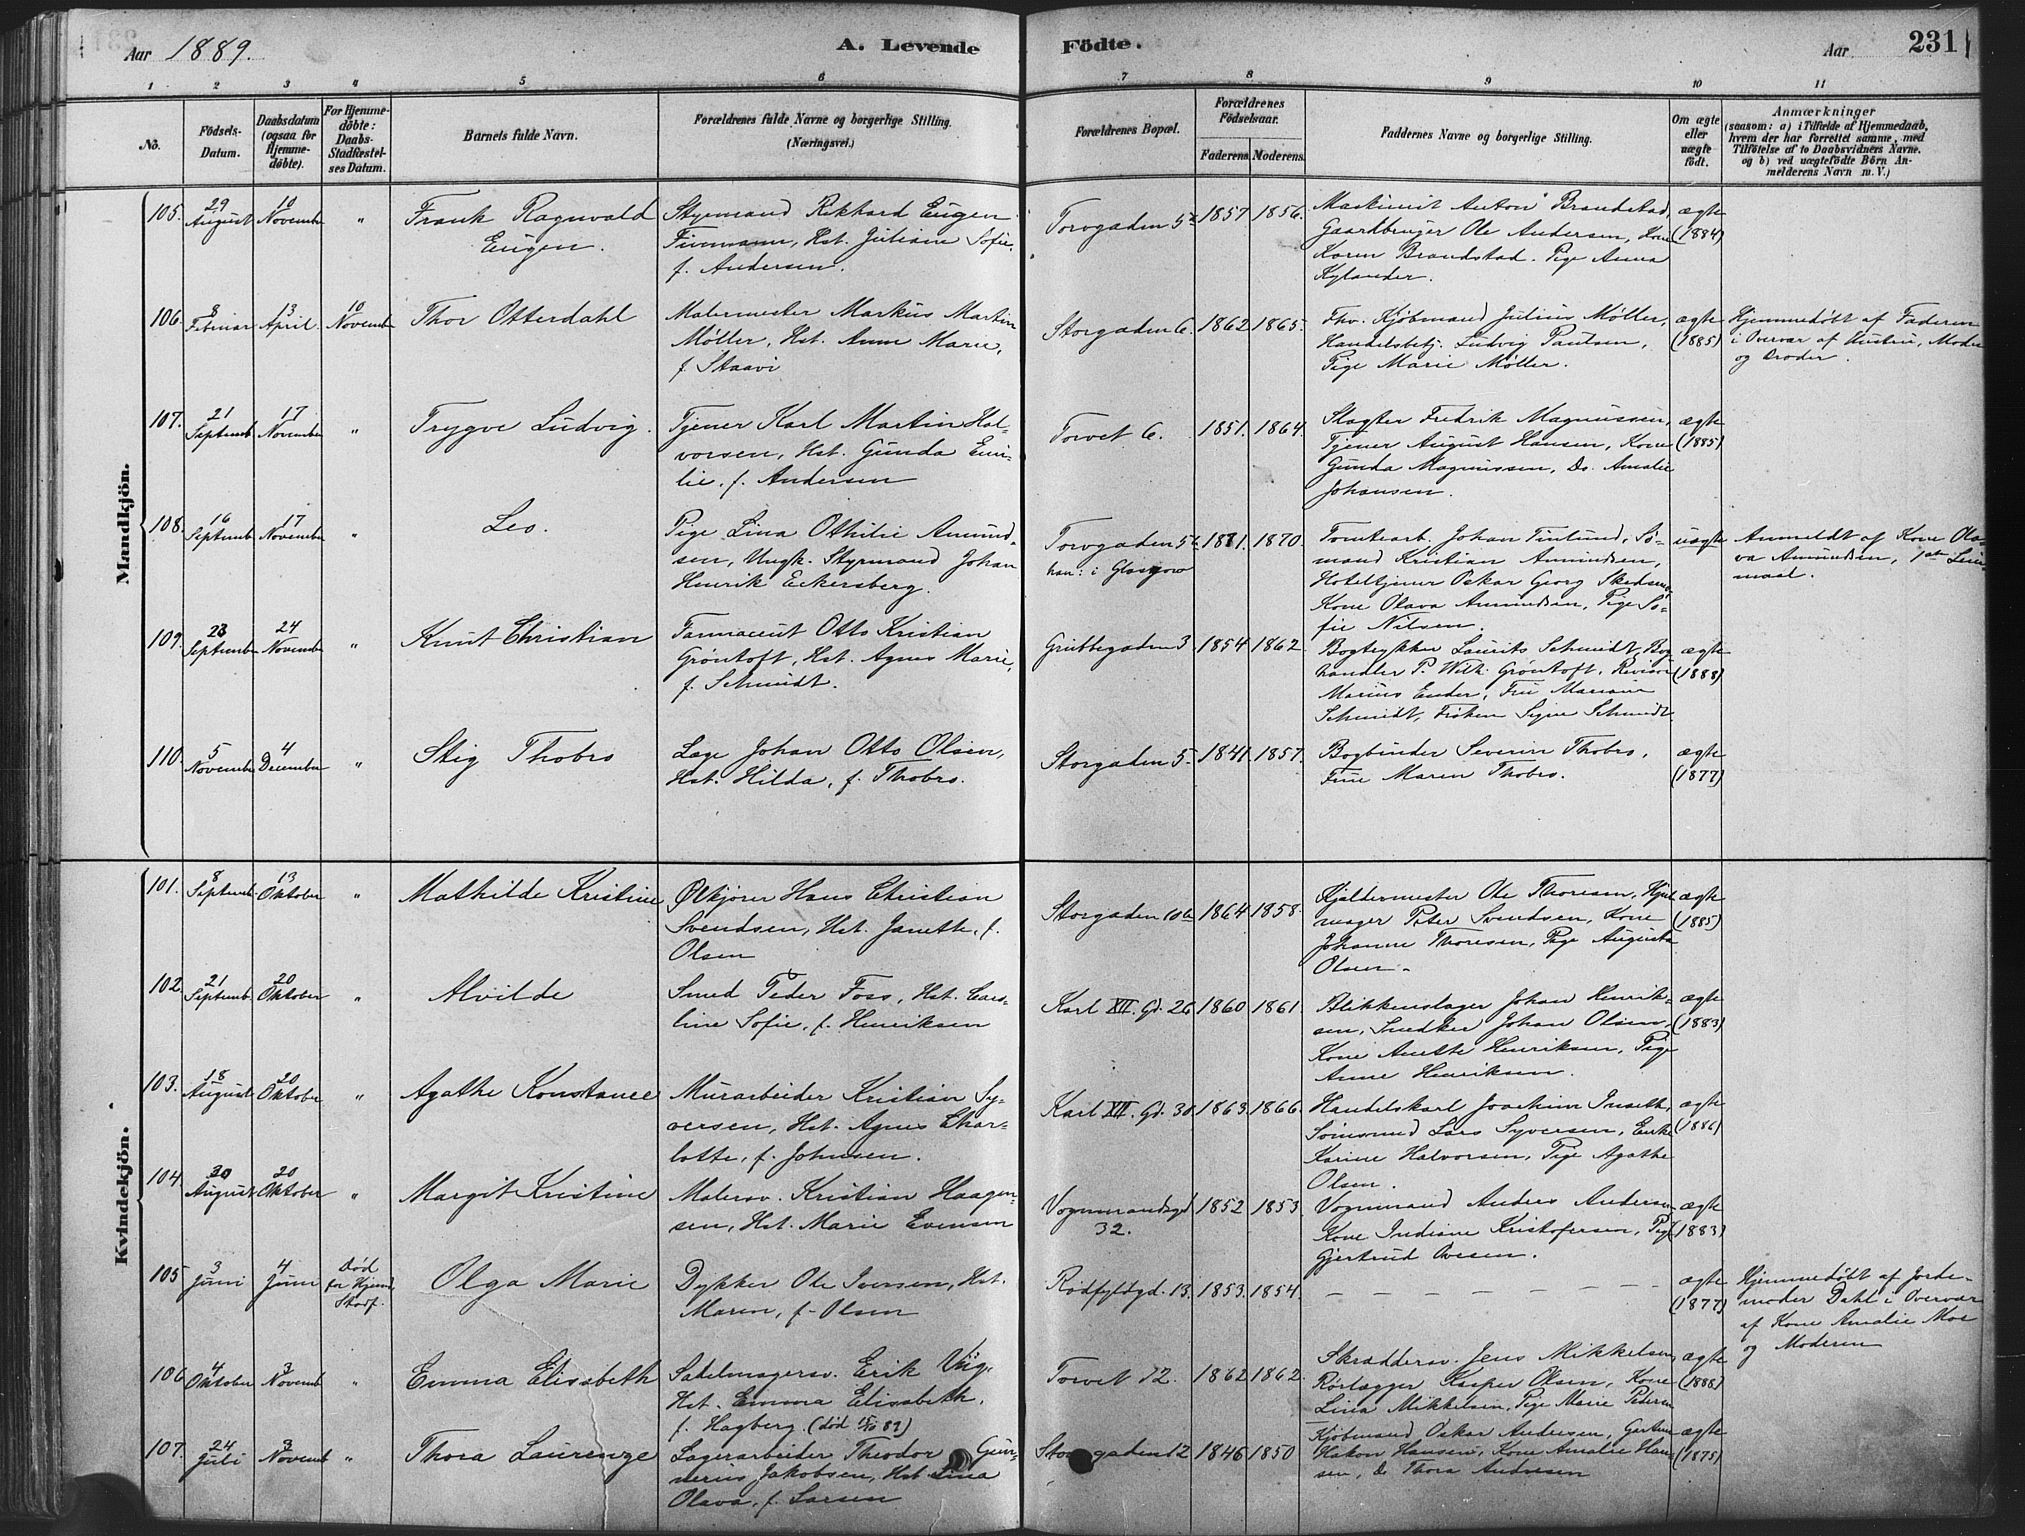 Aar 1889.
A. Levende Födte.
Aar
231
1 2 3 4 5 6 7 8 9 10 11
No.
Födsels-Datum.
Daabsdatum (ogsaa for Hjemme-döbte).
For Hjemme-döbte: Daabs-Stadfæstel-ses Datum.
Barnets fulde Navn.
Forældrenes fulde Navne og borgerlige Stilling. (Næringsvei.)
Forældrenes Bopæl.
Forældrenes Födselsaar.
Faderens. Moderens.
Faddernes Navne og borgerlige Stilling.
Om ægte eller uægte födt.
Anmærkninger (saasom: a) i Tilfælde af Hjemmedaab, hvem der har forrettet samme, med Tilföielse af to Daabsvidners Navne. og b) ved uægtefödte Börn An-melderens Navn m. V.)
Mandkjön.
105. 29 August 10 Novemb " Frank Ragnvald Eugen.
Styrmand Rikhard Eugen
Finmann, Hst. Juliane Sofie,
f. Andersen.
Torvgaden 52 1857 1856.
Maskinist Anton Brandstad,
Gaardbruger Ole Andersen, Kone
Karen Brandstad. Pige Anna
Kylander.
ægte (1884)
106. 8 Februar 13 April 10 Novemb Thor Otterdahl
Malermester Markus Martin
Møller, Hst. Anne Marie,
f. Staavi
Storgaden 6. 1862 1865.
Fhv. Kjøbmand Julius Møller,
Handelsbetj. Ludvig Paulsen,
Pige Marie Møller.
ægte (1885)
Hjemmedøbt af Faderen
i Overvær af Hustru, Moder
og Broder.
107. 21 Septemb 17 November " Trygve Ludvig.
Tjener Karl Martin Hal-
vorsen, Hst. Gunda Emi-
lie, f. Andersen
Torvet 6. 1851. 1864.
Slagter Fredrik Magnussen,
Tjener August Hansen, Kone
Gunda Magnussen, Do. Amalie
Johansen.
ægte (1885)
108. 16 Septemb 17 November " Leo.
Pige Lina Othilie Amund-
sen, Ungk. Styrmand Johan
Henrik Eckersberg.
Torvgaden 52
han: i Glasgow 1870.
Tomtearb. Johan Finlund, Sø-
mand Kristian Amundsen,
Hoteltjener Oskar Georg Skedsmo,
Kone Olava Amundsen, Pige So-
fie Nilsen.
uægte
Anmeldt af Kone Ola-
va Amundsen, 1ste Leier-
maal.
109. 23 September 24 November " Knut Christian
Farmaceut Otto Kristian
Grøntoft, Hst. Agnes Marie,
f. Schmidt.
Grubbegaden 3 1854 1862
Bogtrykker Laurits Schmidt, Bog
handler P. Wilh. Grøntoft, Revisor
Marius Ender, Fru Mariane
Schmidt, Frøken Signe Schmidt
ægte (1888)
110. 5 November 4 December " Stig Thobro
Læge Johan Otto Olsen,
Hst. Hilda, f. Thobro.
Storgaden 5. 1841. 1857.
Bogbinder Severin Thobro,
Frue Maren Thobro.
ægte (1877)
Kvindekjön.
101. 8 Septemb. 13 Oktober " Mathilde Kristine
Ølkjører Hans Christian
Svendsen, Hst. Janette, f.
Olsen
Storgaden 10 1864 1858.
Kjeldermester Ole Thoresen, Hjul
mager Peter Svendsen, Kone
Johanne Thoresen, Pige Augusta
Olsen.
ægte (1885)
102. 21 Septemb. 20 Oktober " Alvilde
Smed Peder Foss, Hst. Caro-
line Sofie, f. Henriksen
Karl XII. Gd. 26 1860 1861
Blikkenslager Johan Henrik-
sen, Snedker Johan Olsen,
Kone Anette Henriksen, Pige
Anne Henriksen.
ægte (1883)
103. 18 August 20 Oktober " Agathe Konstance
Murarbeider Kristian Sy-
versen, Hst. Agnes Char-
lotte, f. Johnsen.
Karl XII. Gd. 30 1863. 1866.
Handelskarl Joachim
Lars Syversen, Enke
Karine Halvorsen, Pige Agathe
Olsen.
ægte (1886)
104. 30 August 20 Oktober " Margit Kristine
Malersv. Kristian Haagen-
sen, Hst. Marie Evensen
Vognmandsgd 32. 1852 1853
Vognmand Anders Andersen
Kone Indiane Kristofersen, Pige
Gjertrud Ovesen.
ægte (1883)
105 3 Juni 4 Juni Død før Hjemd. Stadf. Olga Marie
Dykker Ole Iversen, Hst.
Maren, f. Olsen
Rødfyldgd. 13. 1853. 1854.
— — — — — — —
ægte (1877)
Hjemmedøbt af Jorde-
moder Dahl i Overvær
af Kone Amalie Moe
og Moderen
106 4 Oktober 3 Novemb " Emma Elisabeth
Sadelmagersv. Erik Viig,
Hst. Emma Elisabeth,
f. Hagberg (død 15/10 89)
Torvet 12. 1862 1862.
Skræddersv. Jens Mikkelsen,
Rørlægger Kasper Olsen, Kone
Lina Mikkelsen, Pige Marie Pedersen
ægte (1888)
107. 24 Juli 3 Novemb " Thora Laurenze
Lagerarbeider Theodor Gun-
nerius Jakobsen, Hst Lina
Olava, f. Larsen
Storgaden 12 1846 1850
Kjøbmand Oskar Andresen, Gartner
Hakon Hansen, Kone Amalie Han-
sen, do Thora Andresen
ægte (1875)